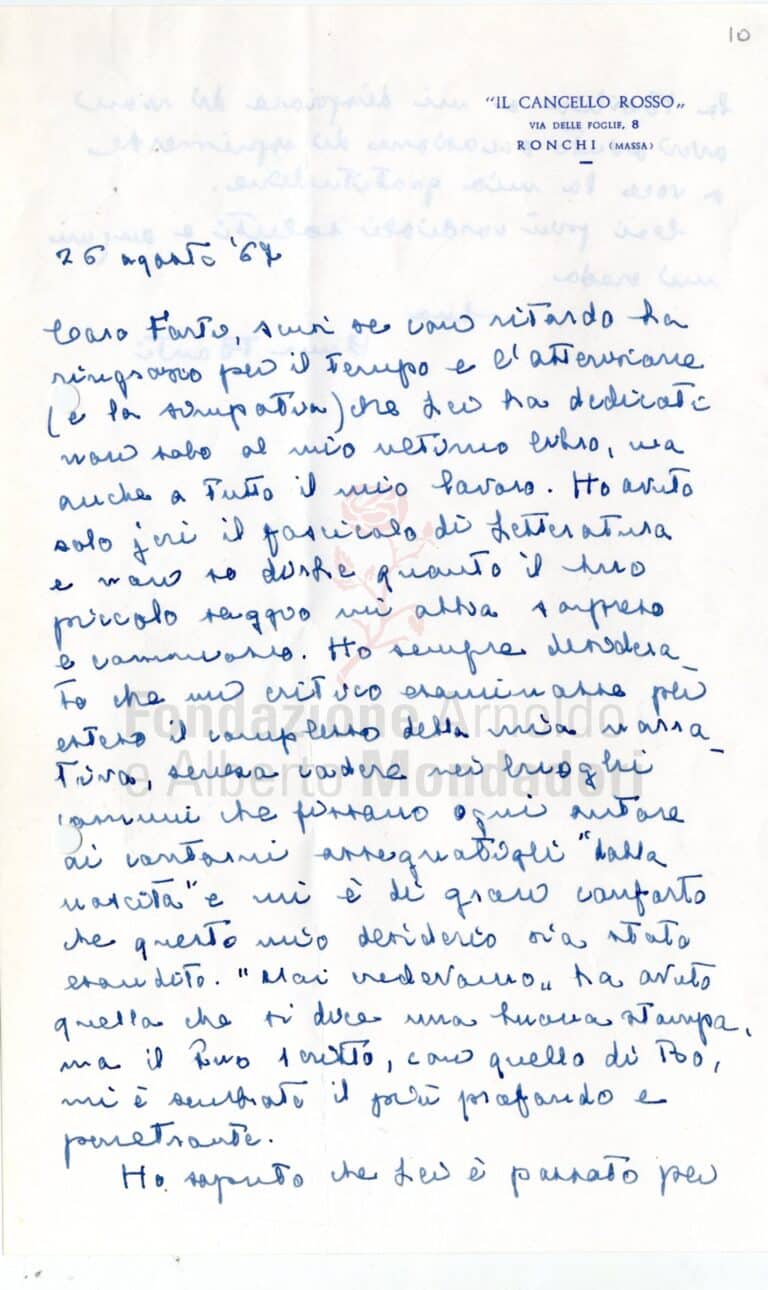 10
"IL CANCELLO ROSSO„
VIA DELLE FOGLIE, 8
RONCHI (MASSA)
26 agosto '67
Caro Forti, scusi se con ritardo La
ringrazio per il tempo e l'attenzione
(e la simpatia) che Lei ha dedicati
non solo al mio ultimo libro, ma
anche a tutto il mio lavoro. Ho avuto
solo jeri il fascicolo di Letteratura
e non so dirLe quanto il Suo
piccolo saggio mi abbia sorpreso
e commosso. Ho sempre desidera_
to che un critico esaminasse per
esteso il complesso della mia narra_
tiva, senza cadere nei luoghi
comuni che fissano ogni autore
ai contorni assegnatigli "dalla
nascita" e mi è di gran conforto
che questo mio desiderio sia stato
esaudito. "Mai vedevamo„ ha avuto
quella che si dice una buona stampa,
ma il Suo scritto, con quello di Bo,
mi è sembrato il più profondo e
penetrante.
Ho saputo che Lei è passato per
Fondazione Arnoldo
e Alberto Mondadori